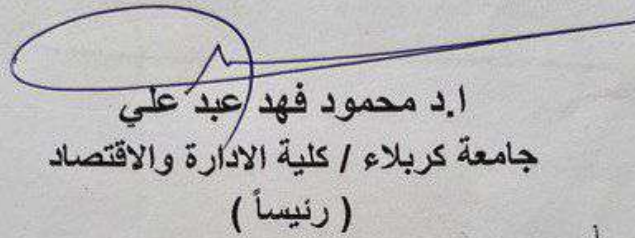 ا.د محمود فهد عبد علي
جامعة كربلاء / كلية الادارة والاقتصاد
( رئيساً )